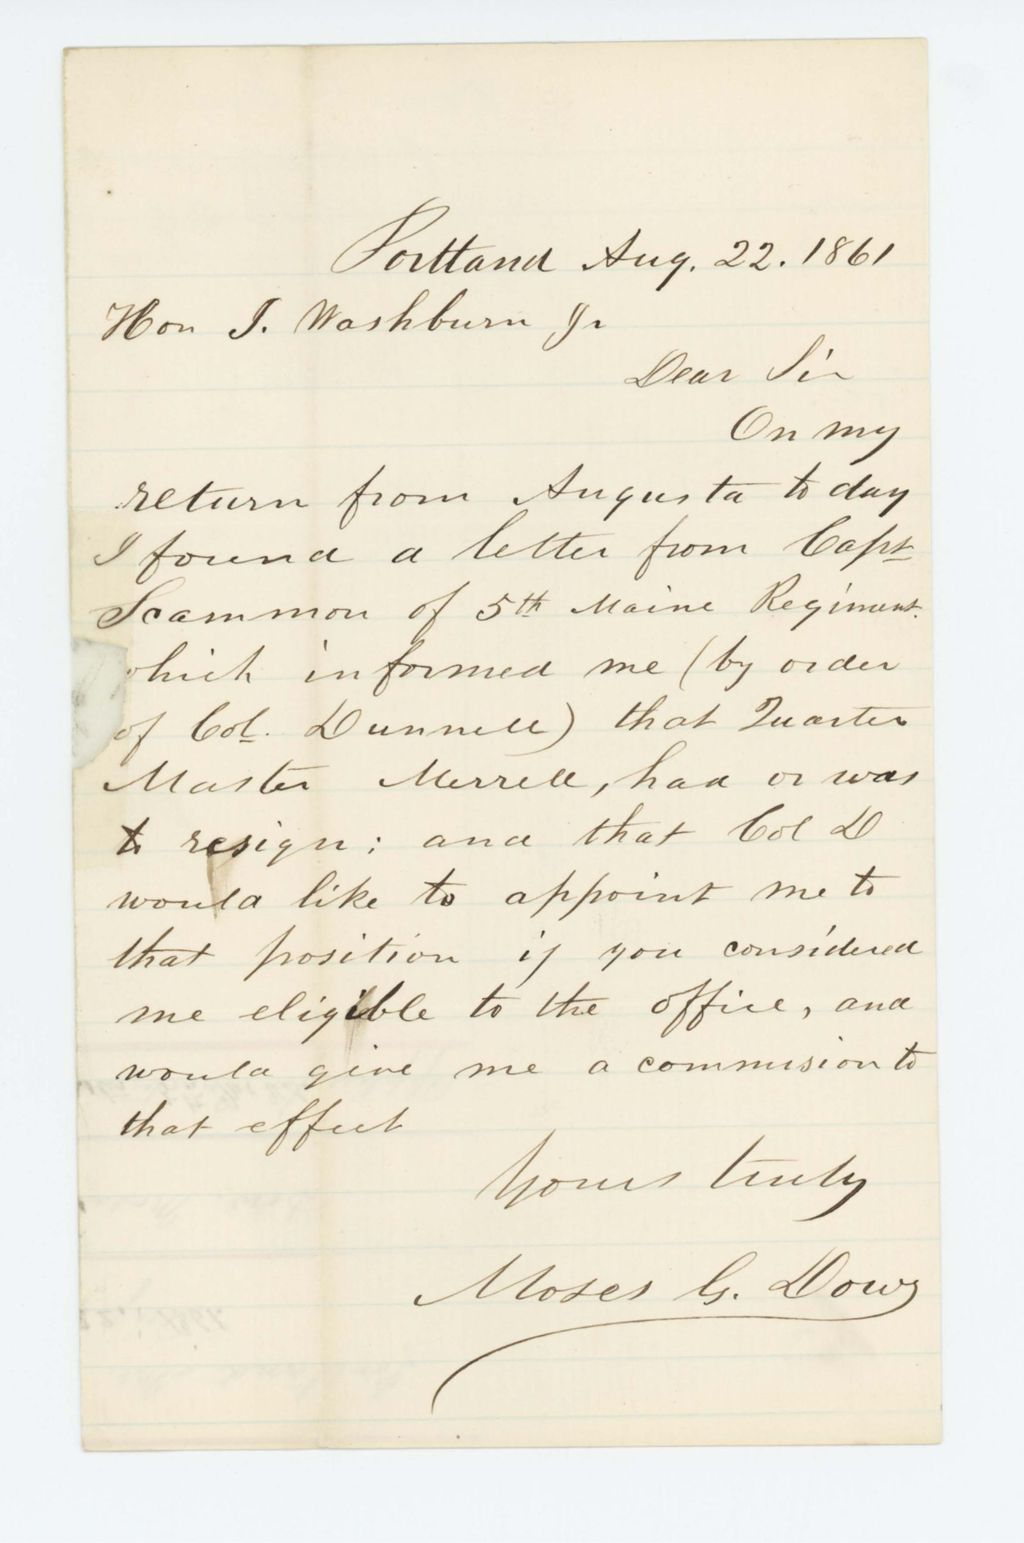 Portland Aug. 22. 1861
Hon I. Washburn Jr
Dear Sir
On my
return from Augusta to day
I found a letter from Capt
Scammon of 5th Maine Regiment.
which informed me (by order
of Col. Dunnell) that Quarter
Master Merrell, had or was
to resign; and that Col D
would like to appoint me to
that position if you considered
me eligible to the office, and
would give me a commision to
that effect
Yours truly
Moses G. Dow